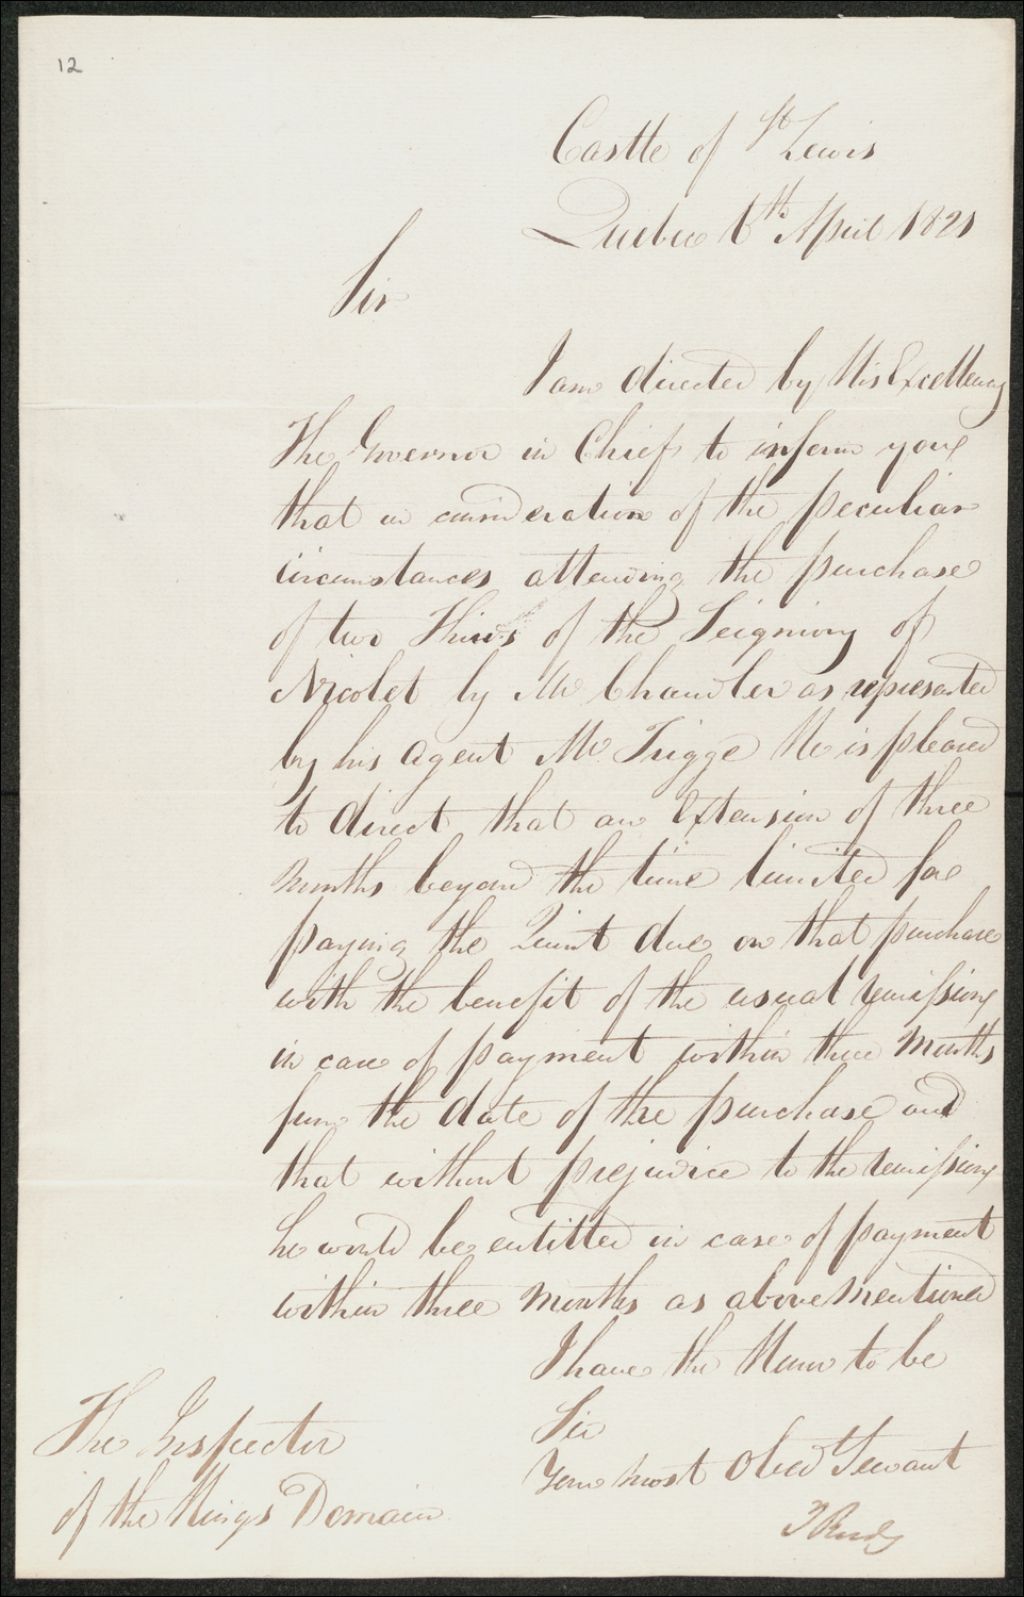 12
Castle of St Lewis
Quebec 6th April 1821
Sir
I am directed by His Excellency
The Governor in Chief to inform you
that in consideration of the peculiar
circumstances attending the purchase
of two Thirds of the Seigniory of
Nicolet by Mr Chandler as represented
by his agent Mr Trigge He is pleased
to direct that an Extension of three
Months beyond the time limited for
paying the Quint due on that purchase
with the benefit of the usual remission
in case of payment within three Months
from the date of the purchase and
that without prejudice to the remission
he would be entitled in case of payment
within three Months as above Mentioned
I have the Honor to be
Sir
Your most Obed Servant
The Inspector
of the Kings Domain